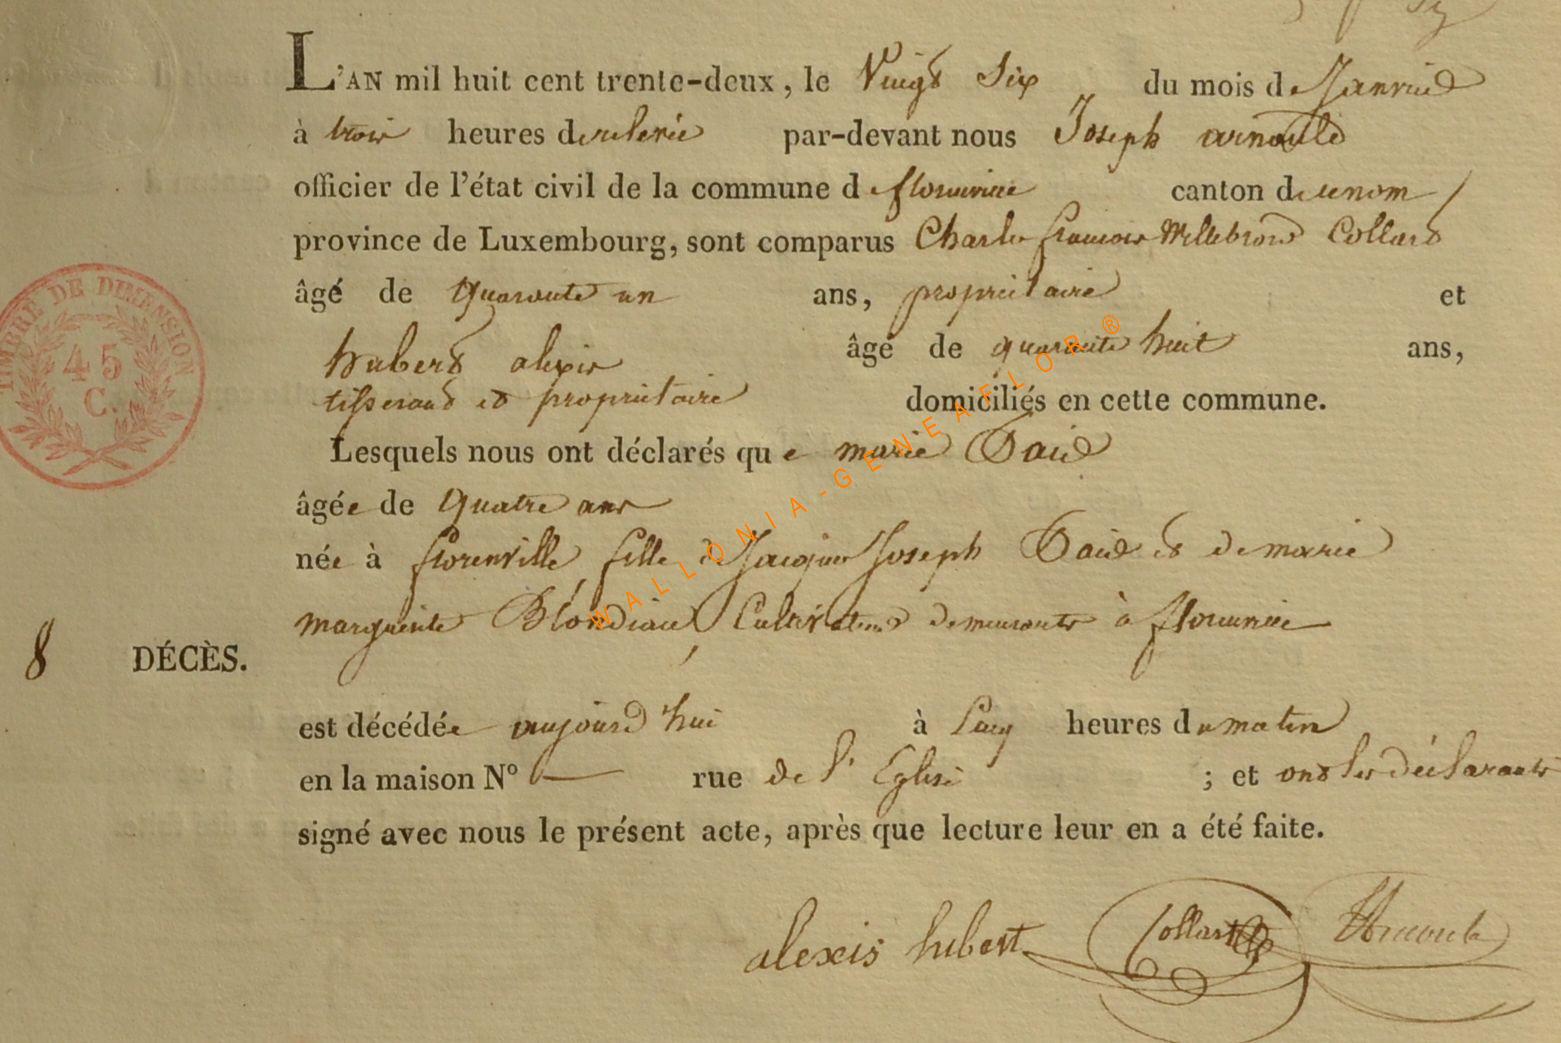 L'AN mil huit cent trente-deux, le Vingt Six du mois de Janvier
à trois heures de relevée par-devant nous Joseph arnould
officier de l'état civil de la commune de florenville canton de ce nom
province de Luxembourg, sont comparus Charles françois Willebrord Collard
âgé de quarante un ans, propriétaire et
hubert alexis âgé de quarante huit ans,
tisserand et propriétaire domiciliés en cette commune.
Lesquels nous ont déclarés que marie
âgée de quatre ans
née à florenville, fille de Jacques Joseph et de marie
marguerite Cultivateurs demeurants à florenville
8 DÉCÈS.
est décédée aujourd'hui à heures du matin
en la maison N° — rue de l'Eglise ; et ont les déclarants
signé avec nous le présent acte, après que lecture leur en a été faite.
alexis hubert Collart Arnould
TIMBRE DE DIMENSION
45
C.
WALLONIA-GENEAFLOR ®